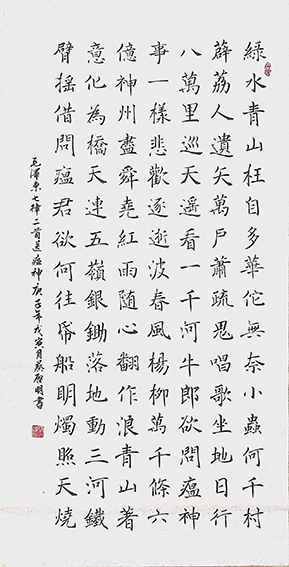 綠水青山枉自多華佗無奈小蟲何千村
薜荔人遺矢萬戶蕭疏鬼唱歌坐地日行
八萬里巡天遙看一千河牛郎欲問瘟神
事一樣悲歡逐逝波春風楊柳萬千條六
億神州盡舜堯紅雨随心翻作浪青山著
意化為橋天連五嶺銀鋤落地動三河鐵
臂搖借問瘟君欲何往帋船明燭照天燒
毛澤東七律二首送瘟神庚子年戊寅月明書